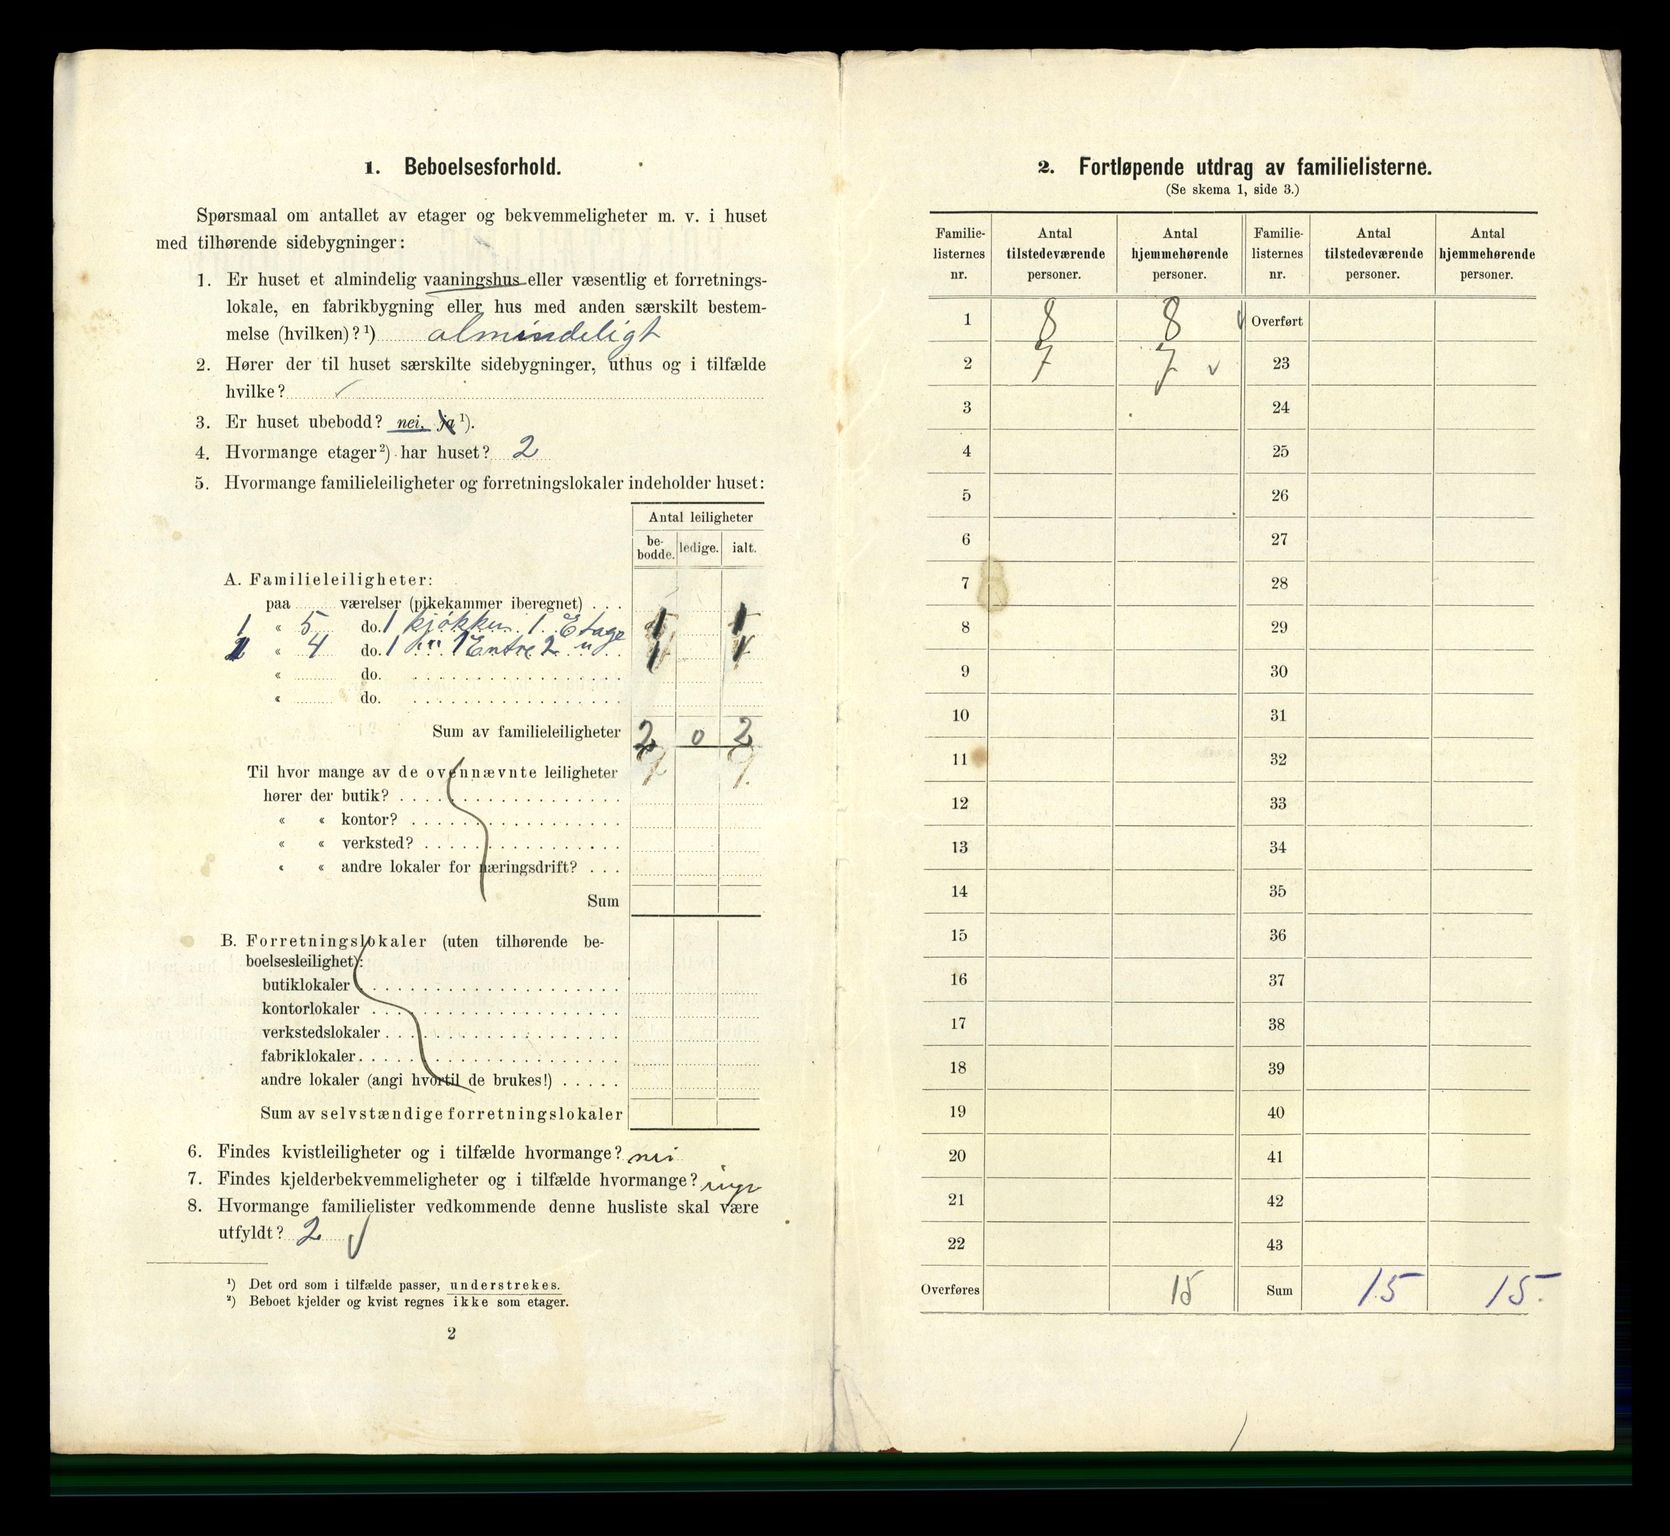 1. Beboelsesforhold.
Spørsmaal om antallet av etager og bekvemmeligheter m. v. i huset
med tilhørende sidebygninger:
1. Er huset et almindelig vaaningshus eller væsentlig et forretnings-
lokale, en fabrikbygning eller hus med anden særskilt bestem-
melse (hvilken)?¹) almindeligt
2. Hører der til huset særskilte sidebygninger, uthus og i tilfælde
hvilke?
3. Er huset ubebodd? nei, ja ¹).
4. Hvormange etager²) har huset? 2
5. Hvormange familieleiligheter og forretningslokaler indeholder huset:
Antal leiligheter
be-
bodde. ledige. ialt.
A. Familieleiligheter:
paa værelser (pikekammer iberegnet) . . .
1 « 5 do. 1 kjøkken 1 Etage 1 1
1 « 4 do. 1 " 1 Entre 2 " 1 1
« do.
« do.
Sum av familieleiligheter 2 0 2
Til hvor mange av de ovennævnte leiligheter
hører der butik?
« « kontor?
« « verksted?
« « andre lokaler for næringsdrift? . . .
Sum
B. Forretningslokaler (uten tilhørende be-
boelsesleilighet):
butiklokaler
kontorlokaler
verkstedslokaler
fabriklokaler
andre lokaler (angi hvortil de brukes!)
Sum av selvstændige forretningslokaler
6. Findes kvistleiligheter og i tilfælde hvormange? nei
7. Findes kjelderbekvemmeligheter og i tilfælde hvormange?
8. Hvormange familielister vedkommende denne husliste skal være
utfyldt? 2
¹) Det ord som i tilfælde passer, understrekes.
²) Beboet kjelder og kvist regnes ikke som etager.
2
2. Fortløpende utdrag av familielisterne.
(Se skema 1, side 3.)
Familie-
listernes
nr.
Antal
tilstedeværende
personer.
Antal
hjemmehørende
personer.
Familie-
listernes
nr.
Antal
tilstedeværende
personer.
Antal
hjemmehørende
personer.
1 8 8 Overført
2 7 7 23
3 24
4 25
5 26
6 27
7 28
8 29
9 30
10 31
11 32
12 33
13 34
14 35
15 36
16 37
17 38
18 39
19 40
20 41
21 42
22 43
Overføres 15 Sum 15 15.